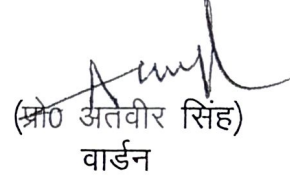 (प्रो0 अतवीर सिंह)
वार्डन